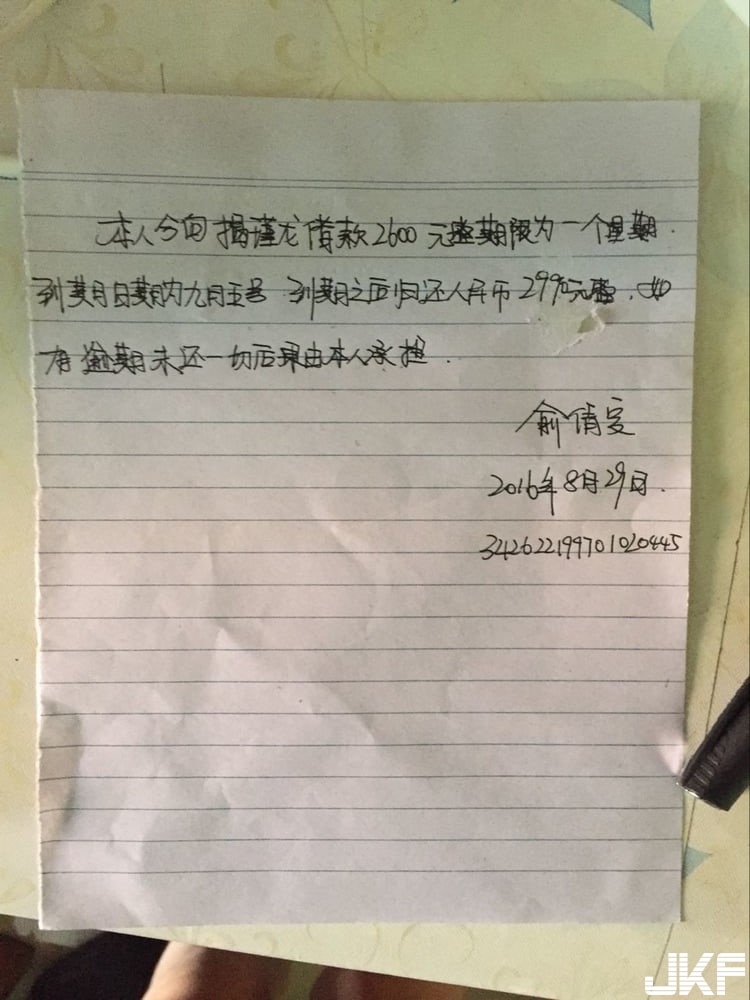 本人今向揭谨龙借款2600元整期限为一个星期.
到期日期为九月五号 到期之后归还人民币2990元整.如
有逾期未还一切后果由本人承担.
俞倩雯
2016年8月29日.
342622199701020445
JKF